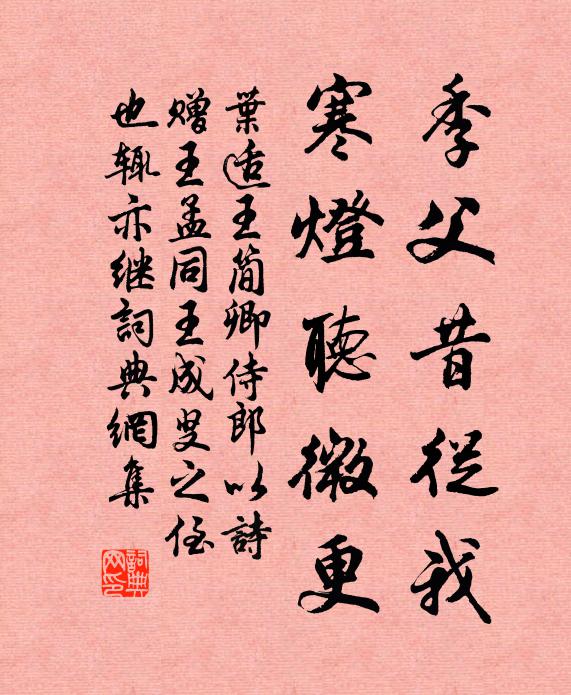 季父昔從我
寒燈聽微更
葉适王簡卿侍郎以詩
贈王孟同王成叟之侄
也輒亦繼詞典網集
詞典网印